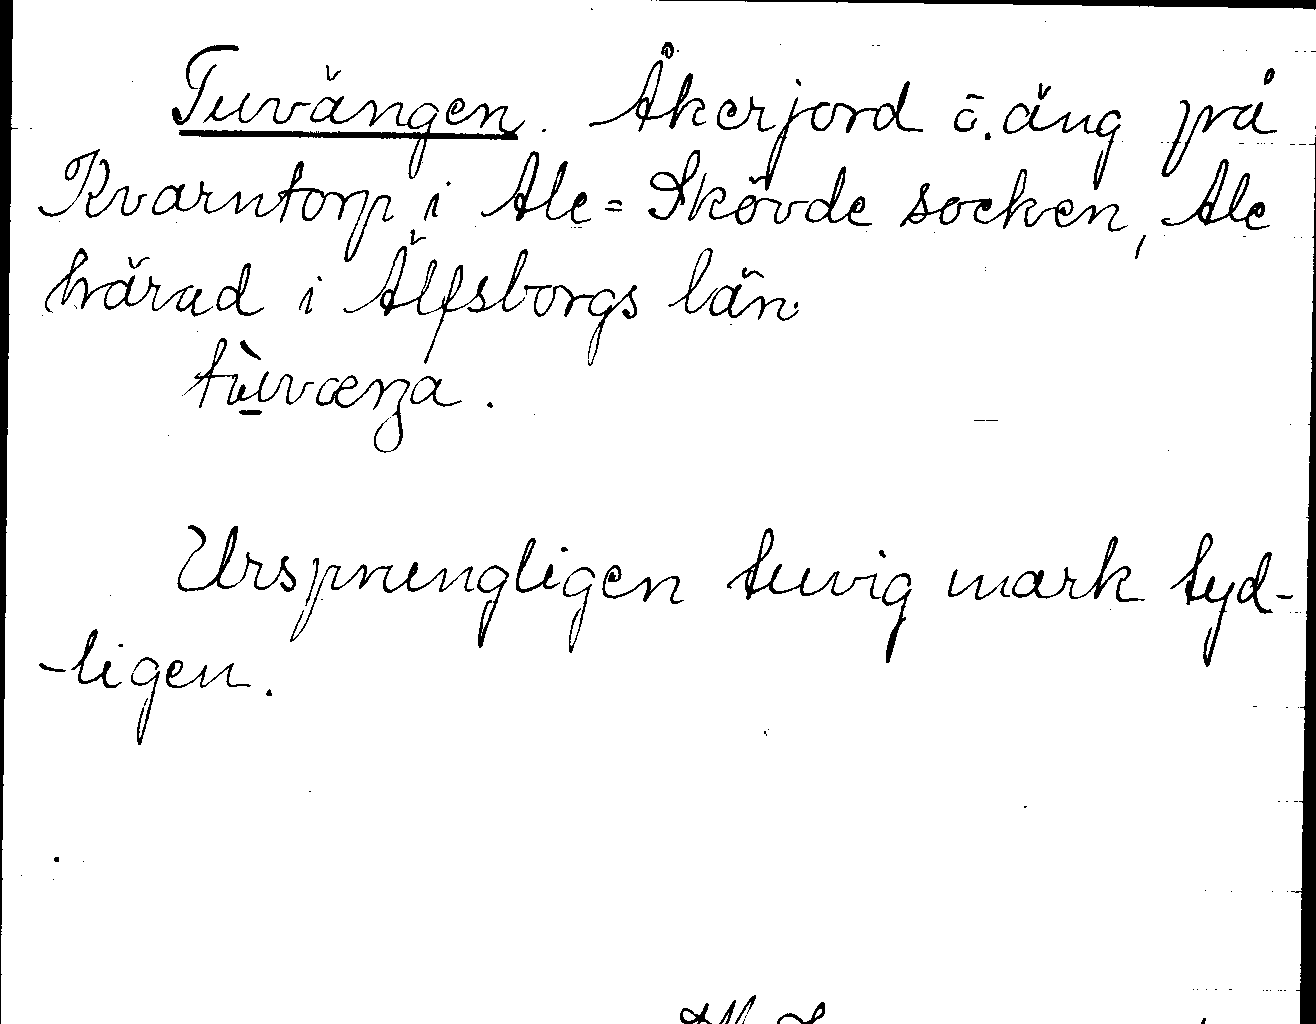 Tuvängen. Åkerjord o. äng på
Kvarntorp i Ale=Skövde socken, Ale
härad i Älfsborgs län.
tùvænȝa.
Ursprungligen tuvig mark tyd-
-ligen.